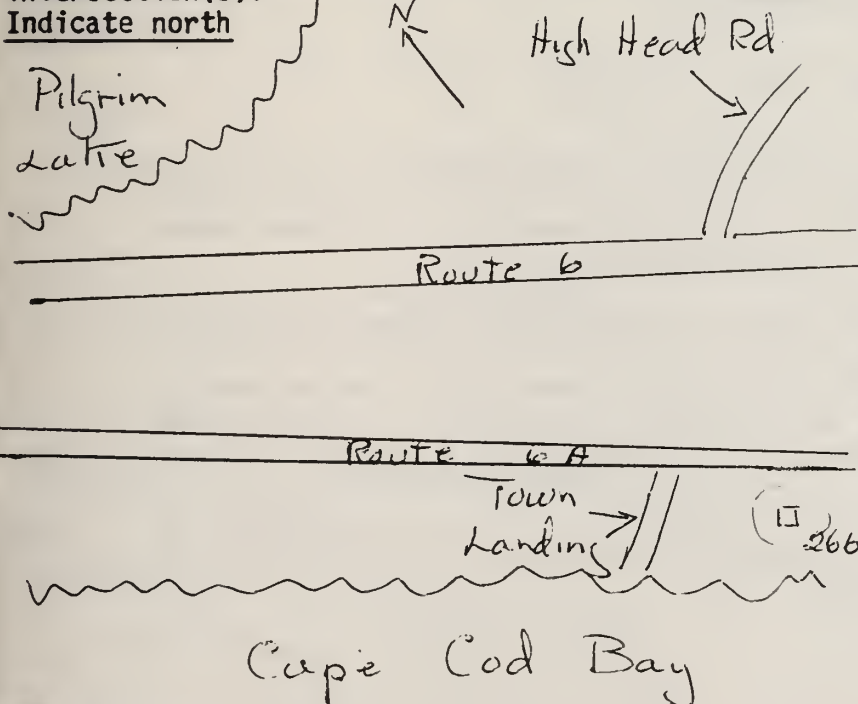 Indicate north
N
High Head Rd
Pilgrim
Lake
Route 6
Route 6A
Town
Landing
266
Cape Cod Bay